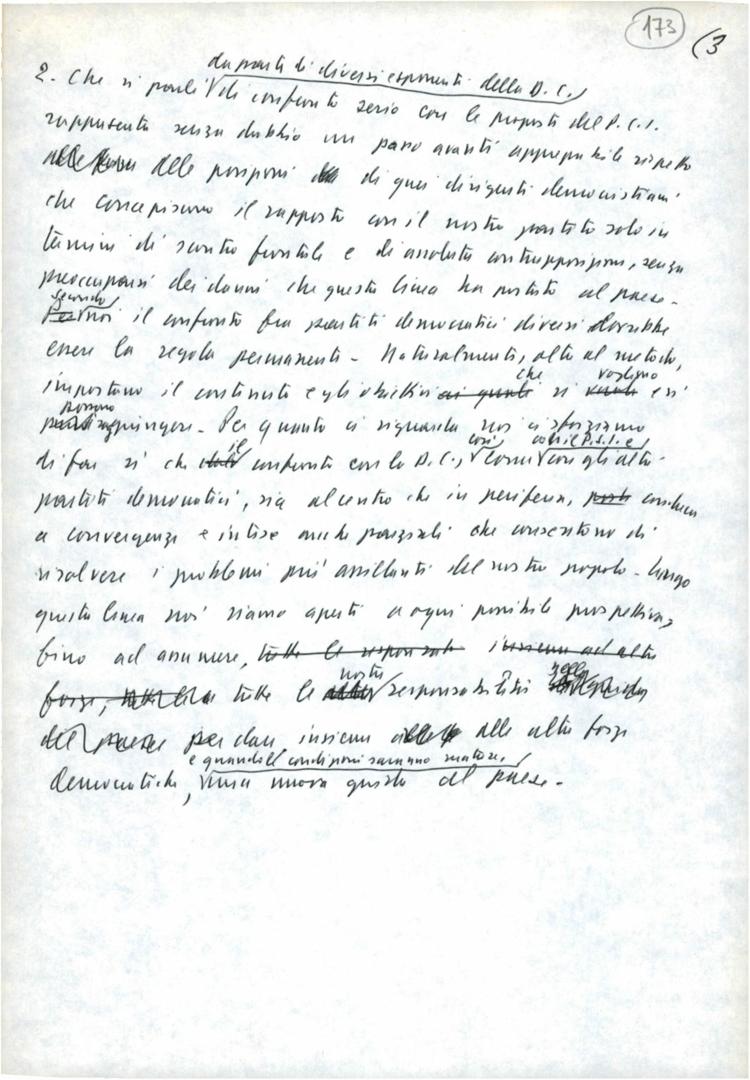 173 (3
da parte di diversi esponenti della D.C.
2. Che si parli di confronto serio con le proposte del P.C.I.
rappresenta senza dubbio un passo avanti apprezzabile rispetto
delle posizioni di quei dirigenti democristiani
che concepiscono il rapporto con il nostro partito solo in
termini di scontro frontale e di assoluta contrapposizione, senza
preoccuparsi dei danni che questa linea ha portato al paese.
Secondo
noi il confronto fra partiti democratici diversi dovrebbe
essere la regola permanente. Naturalmente, oltre al metodo,
che vogliono
importano il contenuto e gli obiettivi ai quali si e si
possono
raggiungere. Per quanto ci riguarda noi ci sforziamo
il così con il P.S.I. e
di far sì che confronto con la D.C., come con gli altri
partiti democratici, sia al centro che in periferia, conduca
a convergenze e intese anche parziali che consentano di
risolvere i problemi più assillanti del nostro popolo. Lungo
questa linea noi siamo aperti a ogni possibile prospettiva,
fino ad assumere, tutte le responsabilità insieme ad altre
nostre
forze, tutte le responsabilità
del paese per dare insieme alle altre forze
e quando le condizioni saranno mature,
democratiche, una nuova guida al paese.